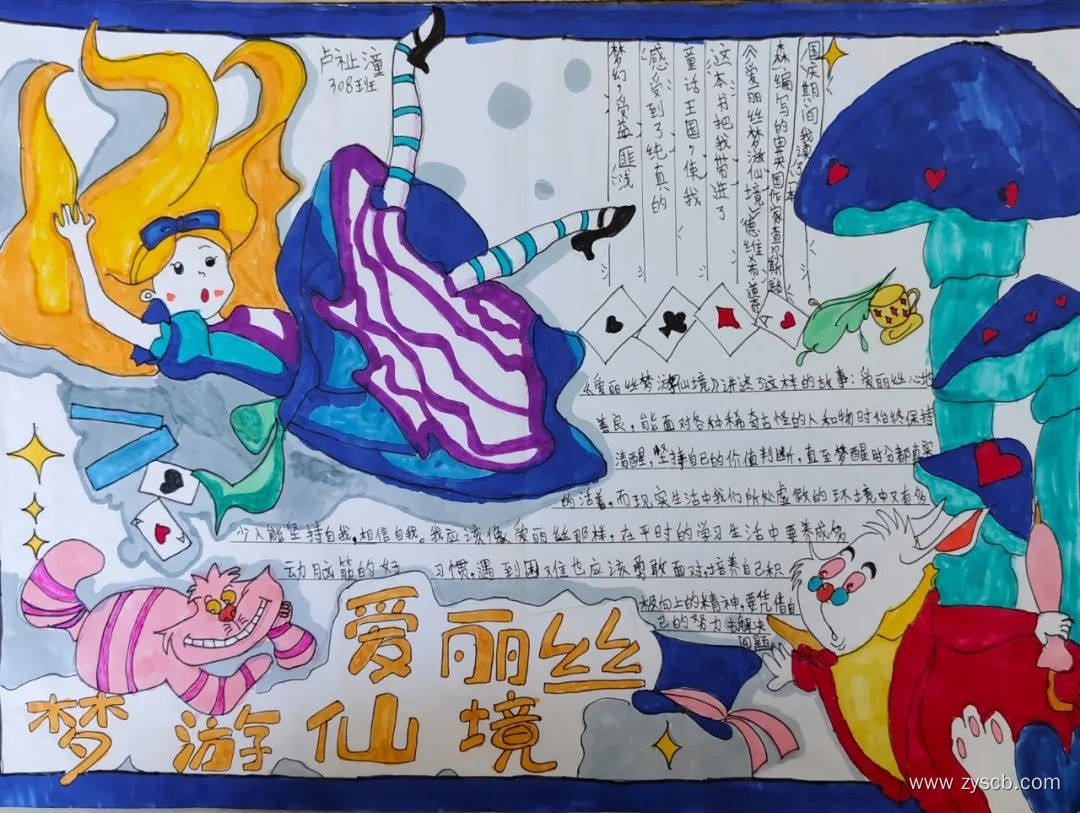 卢祉潼
308班
国庆期间我读了一本
森编写的由英国作家查尔斯路
《爱丽丝梦游仙境》德维希道奇
这本书把我带进了
童话王国,使我
感受到了纯真的
梦幻,受益匪浅
《爱丽丝梦游仙境》讲述了这样的故事:爱丽丝心地
善良,能面对各种稀奇古怪的人和物时始终保持
清醒,坚持自己的价值判断,直至梦醒时分都真实
的活着,而现实生活中我们所处虚微的环境中又有多
少人能坚持自我,相信自我。我应该像爱丽丝那样,在平时的学习生活中要养成多
动脑筋的好习惯,遇到困难也应该勇敢面对,培养自己积
极向上的精神,要凭借自
己的努力去解决
问题
爱丽丝
梦游仙境
www.zyscb.com